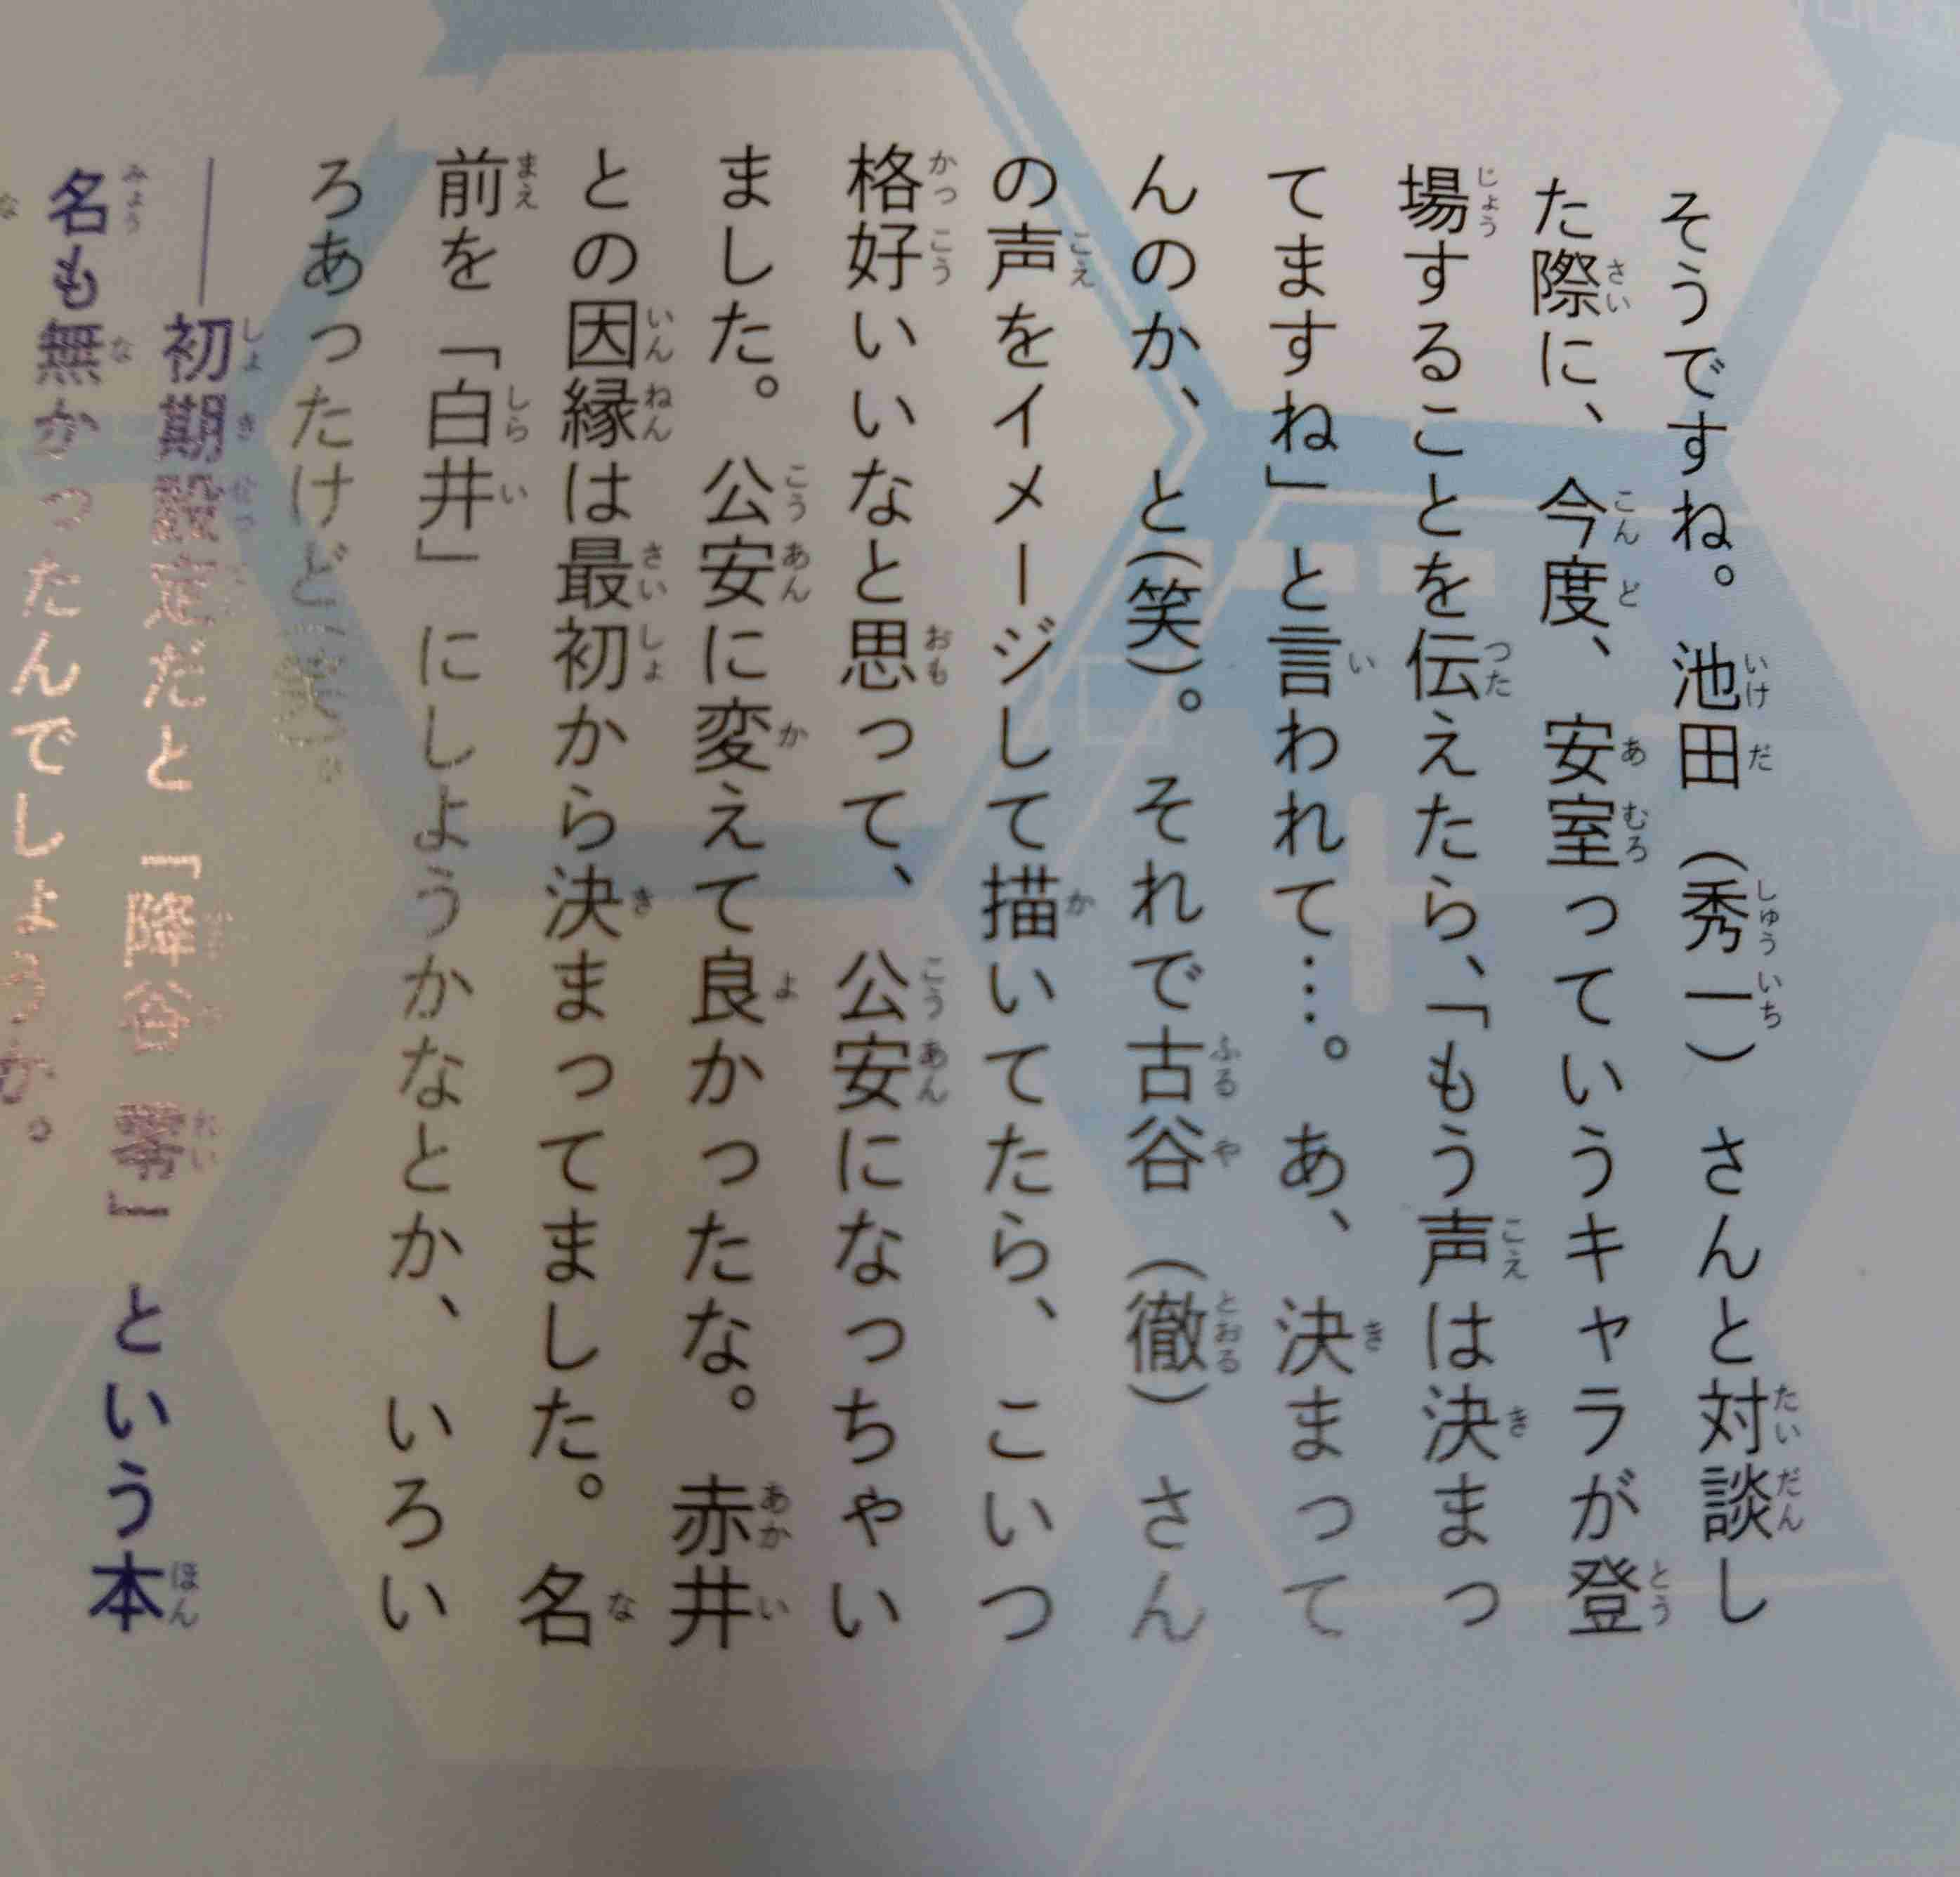 そうですね。池田（秀一）さんと対談し
た際に、今度、安室っていうキャラが登
場することを伝えたら、「もう声は決まっ
てますね」と言われて…。あ、決まって
んのか、と（笑）。それで古谷（徹）さん
の声をイメージして描いてたら、こいつ
格好いいなと思って、公安になっちゃい
ました。公安に変えて良かったな。赤井
との因縁は最初から決まってました。名
前を「白井」にしようかなとか、いろい
ろあったけど（笑）。
――初期設定だと「降谷 零」という本
名も無かったんでしょうか。